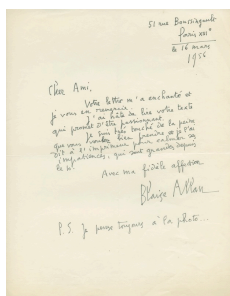 51 rue Boussingault
Paris XIIIe
le 16 mars
1956
Cher Ami,
Votre lettre m'a enchanté et
je vous en remercie.
J'ai hâte de lire votre texte
qui promet d'être passionnant.
Je suis très touché de la peine
que vous voulez bien prendre
dit à l'imprimeur pour calmer ses
impatiences, qui sont grandes depuis
le
Avec ma fidèle affection
Blaise Allan
P.S. Je pense toujours à la photo...